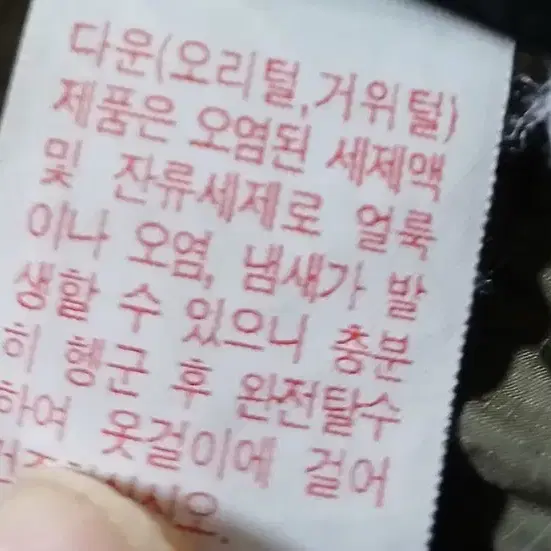 다운(오리털,거위털)
제품은 오염된 세제액
및 잔류세제로 얼룩
이나 오염, 냄새가 발
생할 수 있으니 충분
히 행군 후 완전탈수
하여 옷걸이에 걸어